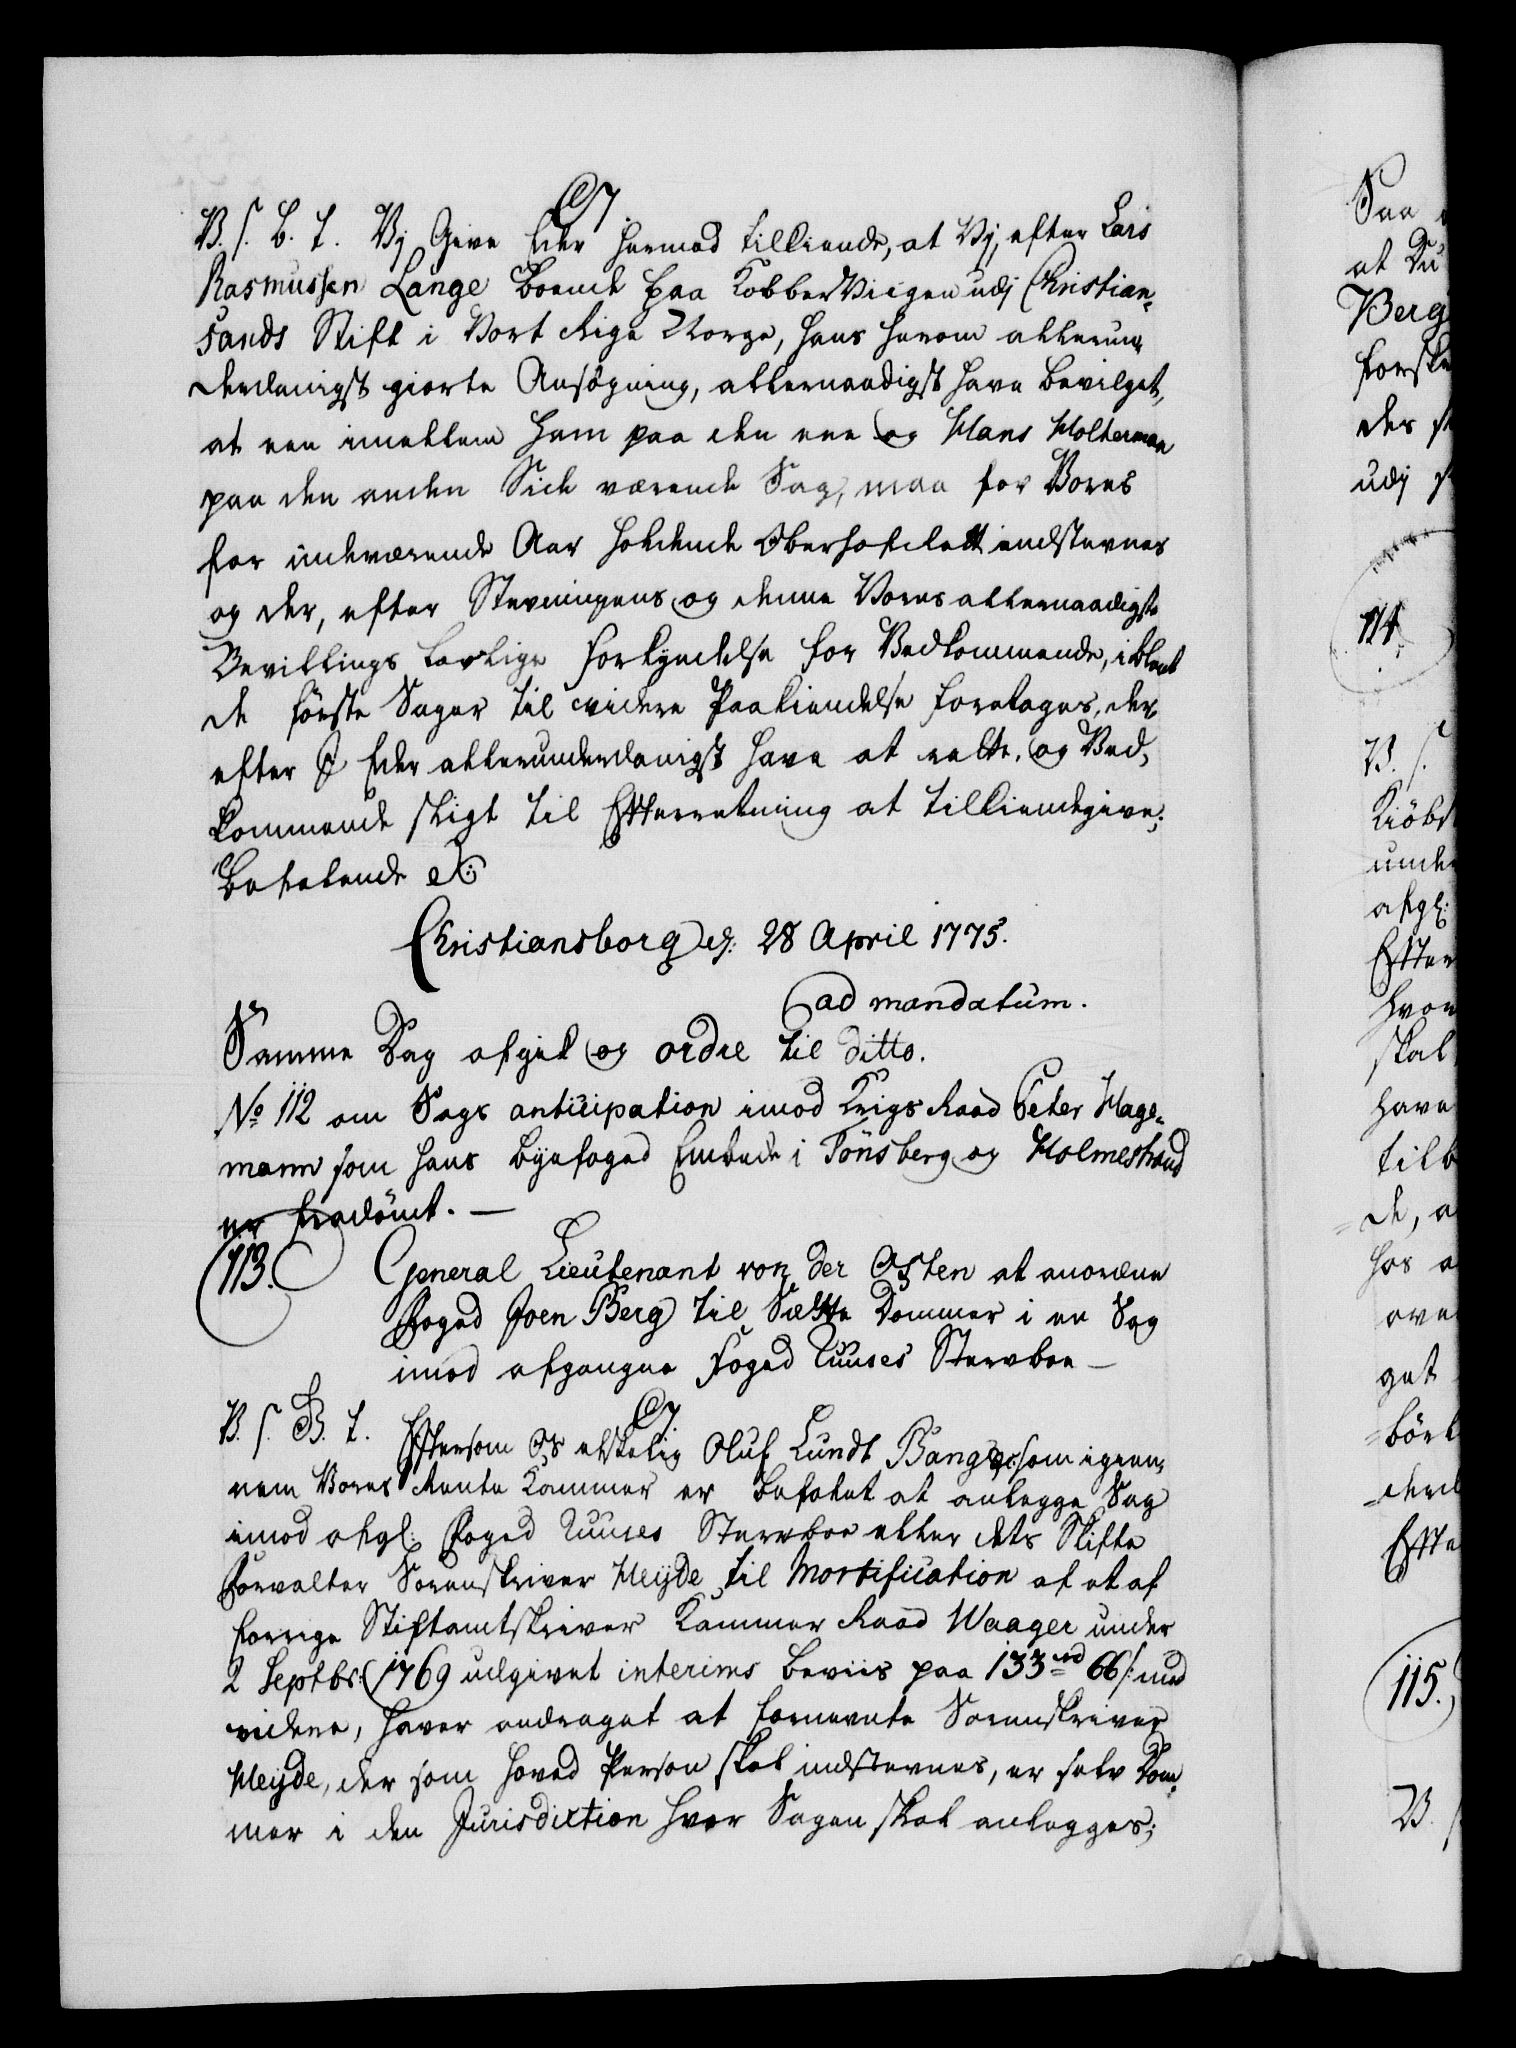 C7
V. S. B. T. Vj Give Eder hermed tilkiende, at Vj, efter Lars
Rasmussen Lange boende paa Kobber Viigen udj Christian-
sands Stift i Vort Rige Norge, hans herom allerun-
derdanigst giorte Ansögning, allernaadigst have bevilget,
at een imellem ham paa den ene og Hans Holterman
paa den anden Side værende Sag, maa for Vores
for indeværende Aar holdende Oberhofrett indstevnes
og der, efter Stevningens og denne Vores allernaadigste
Bevillings lovlige Forkyndelse for Vedkommende, iblant
de første Sager til videre Paakiendelse foretages, der-
efter I Eder allerunderdanigst have at rette, og Ved-
kommende sligt til Efterretning at tilkiendegive;
Befalende etc:
Christiansborg d: 28 April 1775.
ad mandatum.
Samme Dag afgik og ordre til ditto.
No 112 om Sags anticipation imod Krigs Raad Peter Hage-
mann som hans byefoged Embede i Tönsberg og Holmestrand
er fradömt. —
113. General Lieutenant von der Osten at anordne
Foged Joen Berg til Sætte Dommer i en Sag
imod afgangne Foged Tuuses Stervboe —
C7
V. S. B. T. Eftersom Os elskelig Oluf Lundt Bang, som igien-
nem Vores Rente Kammer er befalet at anlegge Sag
imod afgl: Foged Tuuses Stervboe eller dets Skifte
Forvalter Sorenskriver Heyde til Mortification af et af
forrige Stiftamtskriver Kammer Raad Waager under
2 Septbr: 1769 udgivet interims beviis paa 133 rd 66 s: med
videre, haver andraget at fornevnte Sorenskriver
Heyde, der som hoved Person skal indstevnes, er selv Dom-
mer i den Jurisdiction hvor Sagen skal anlegges;
Saa
at Du
Berg
forske
der
udj
114.
V. S.
Kiöb
unde
afgl:
Efter
hvor
skal
have
tilb
de, a
hos a
ove
get
börl
derd
Efte
115.
V.